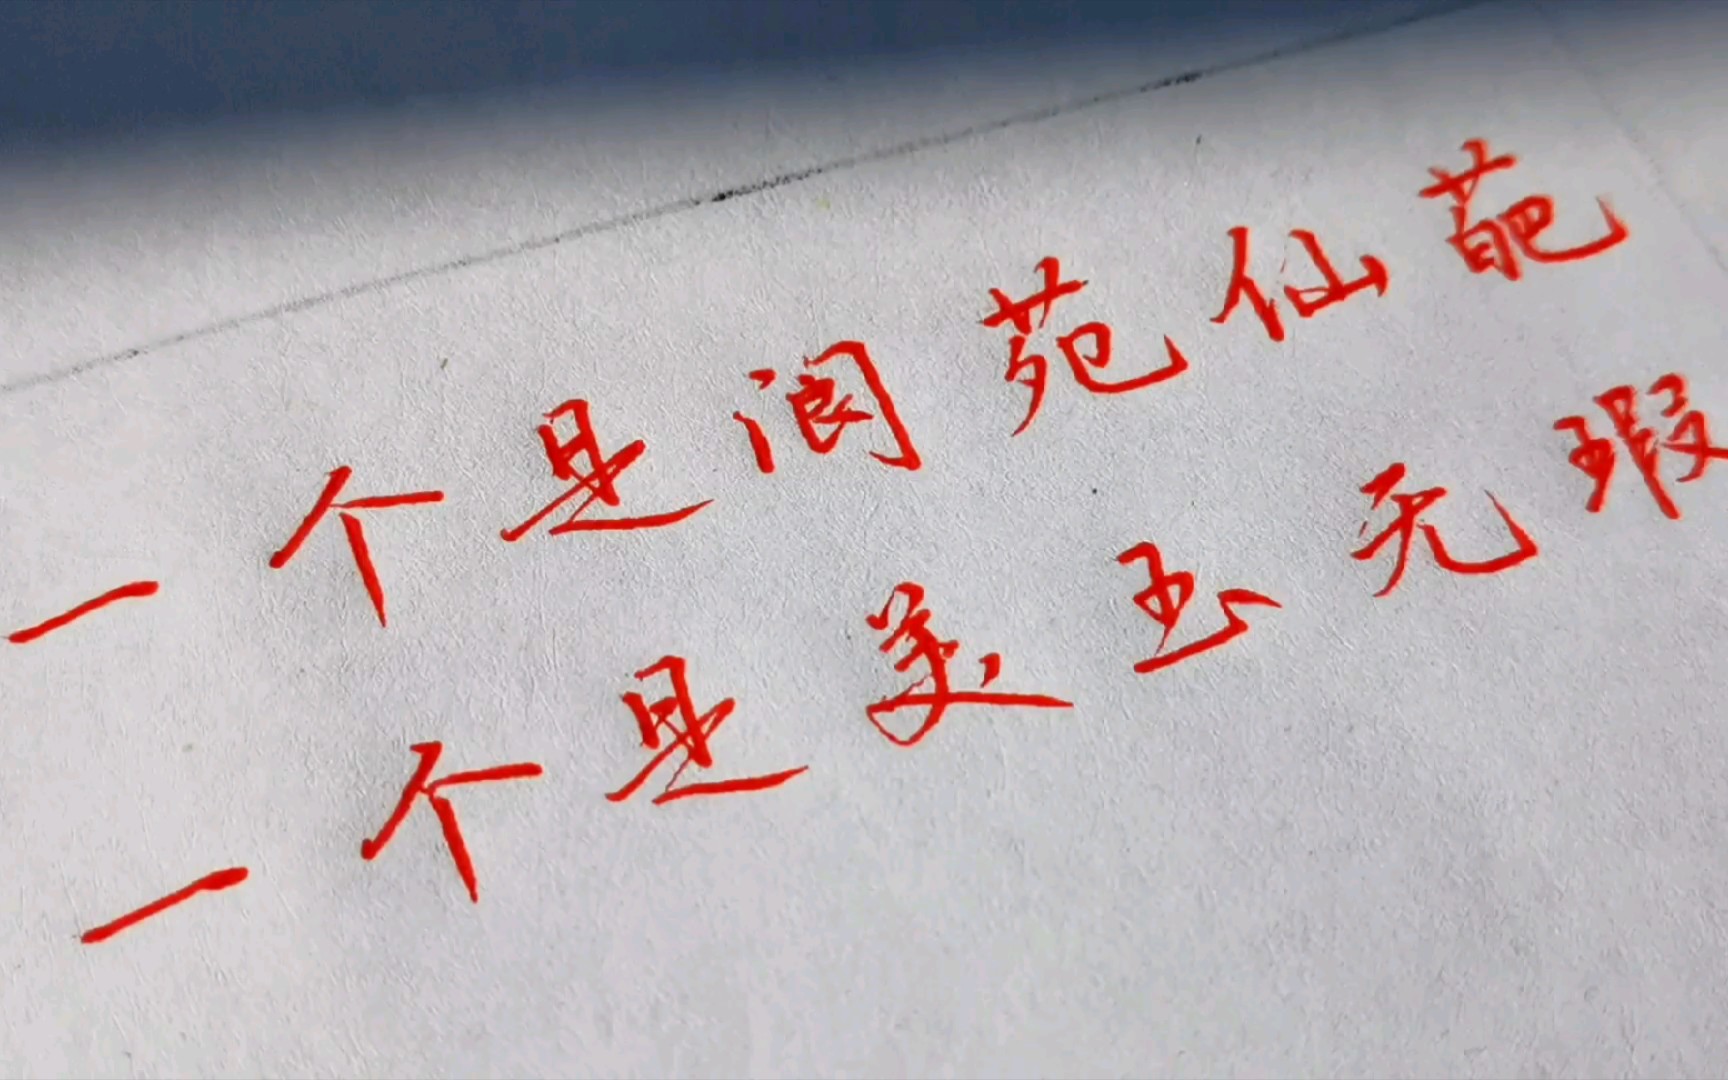 一个是阆苑仙葩
一个是美玉无瑕